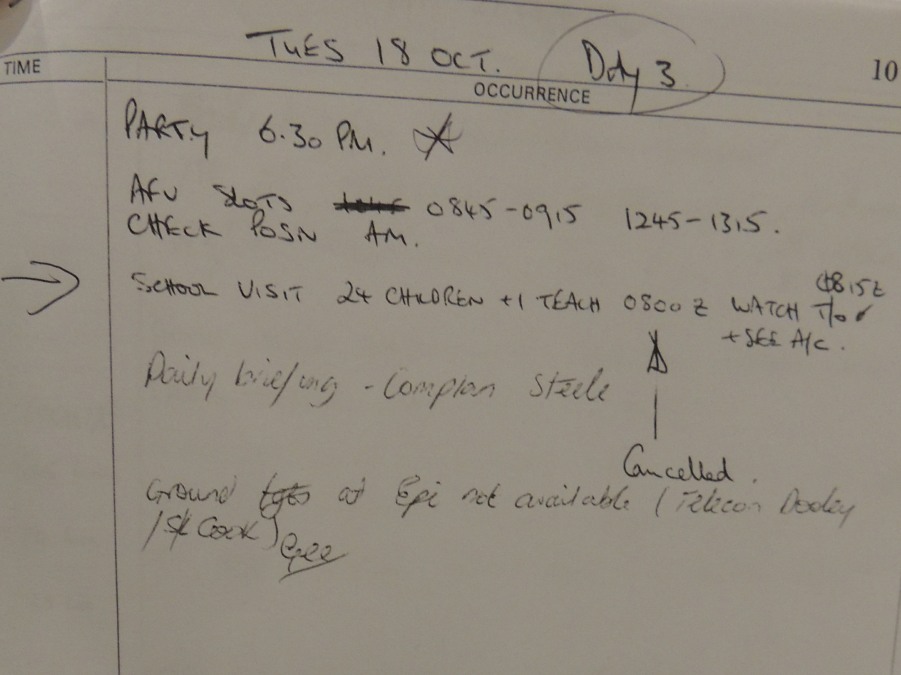 TUES 18 OCT. Day 3 10
TIME OCCURRENCE
PARTY 6.30 PM.
AFU SLOTS 0845-0915 1245-1315.
CHECK POSN AM.
SCHOOL VISIT 24 CHILDREN +1 TEACH 0800Z WATCH T/O 0815Z
+SEE A/C.
Daily briefing - Complan Steele
Cancelled.
Ground at Epi not available (Telecon Dooley
/ Cook)